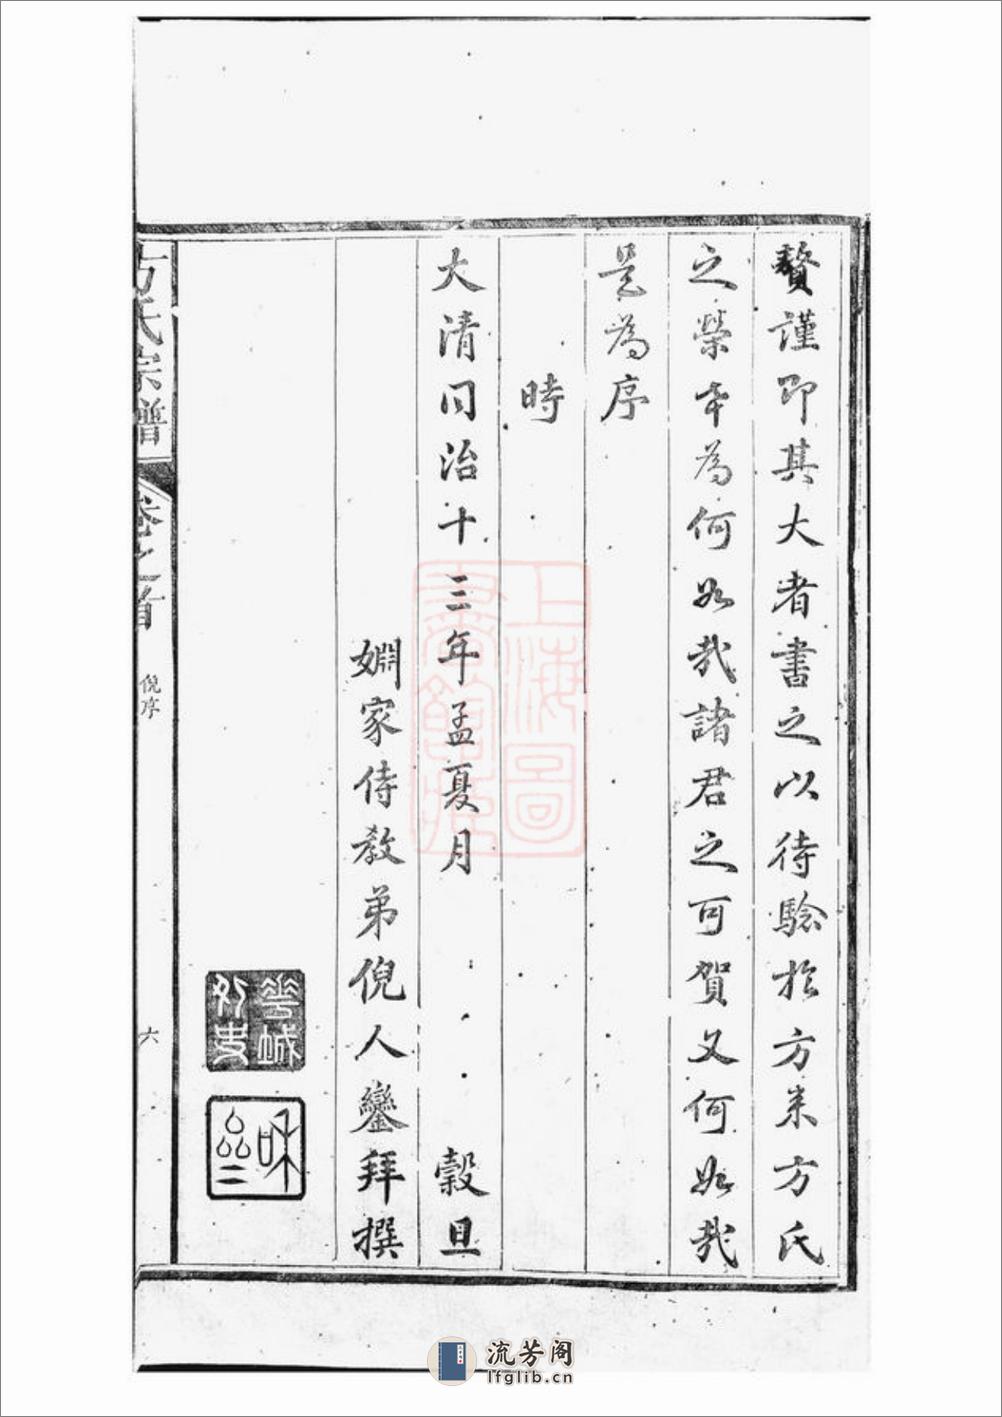 贅謹即其大者書之以待驗於方来方氏
之榮幸為何如哉諸君之可賀又何如哉
是為序
時
大清同治十三年孟夏月 穀旦
姻家侍教弟倪人鑾拜撰
花城外史
方氏宗譜 卷之首 倪序 六
上海圖書館藏
流芳阁
lfglib.cn